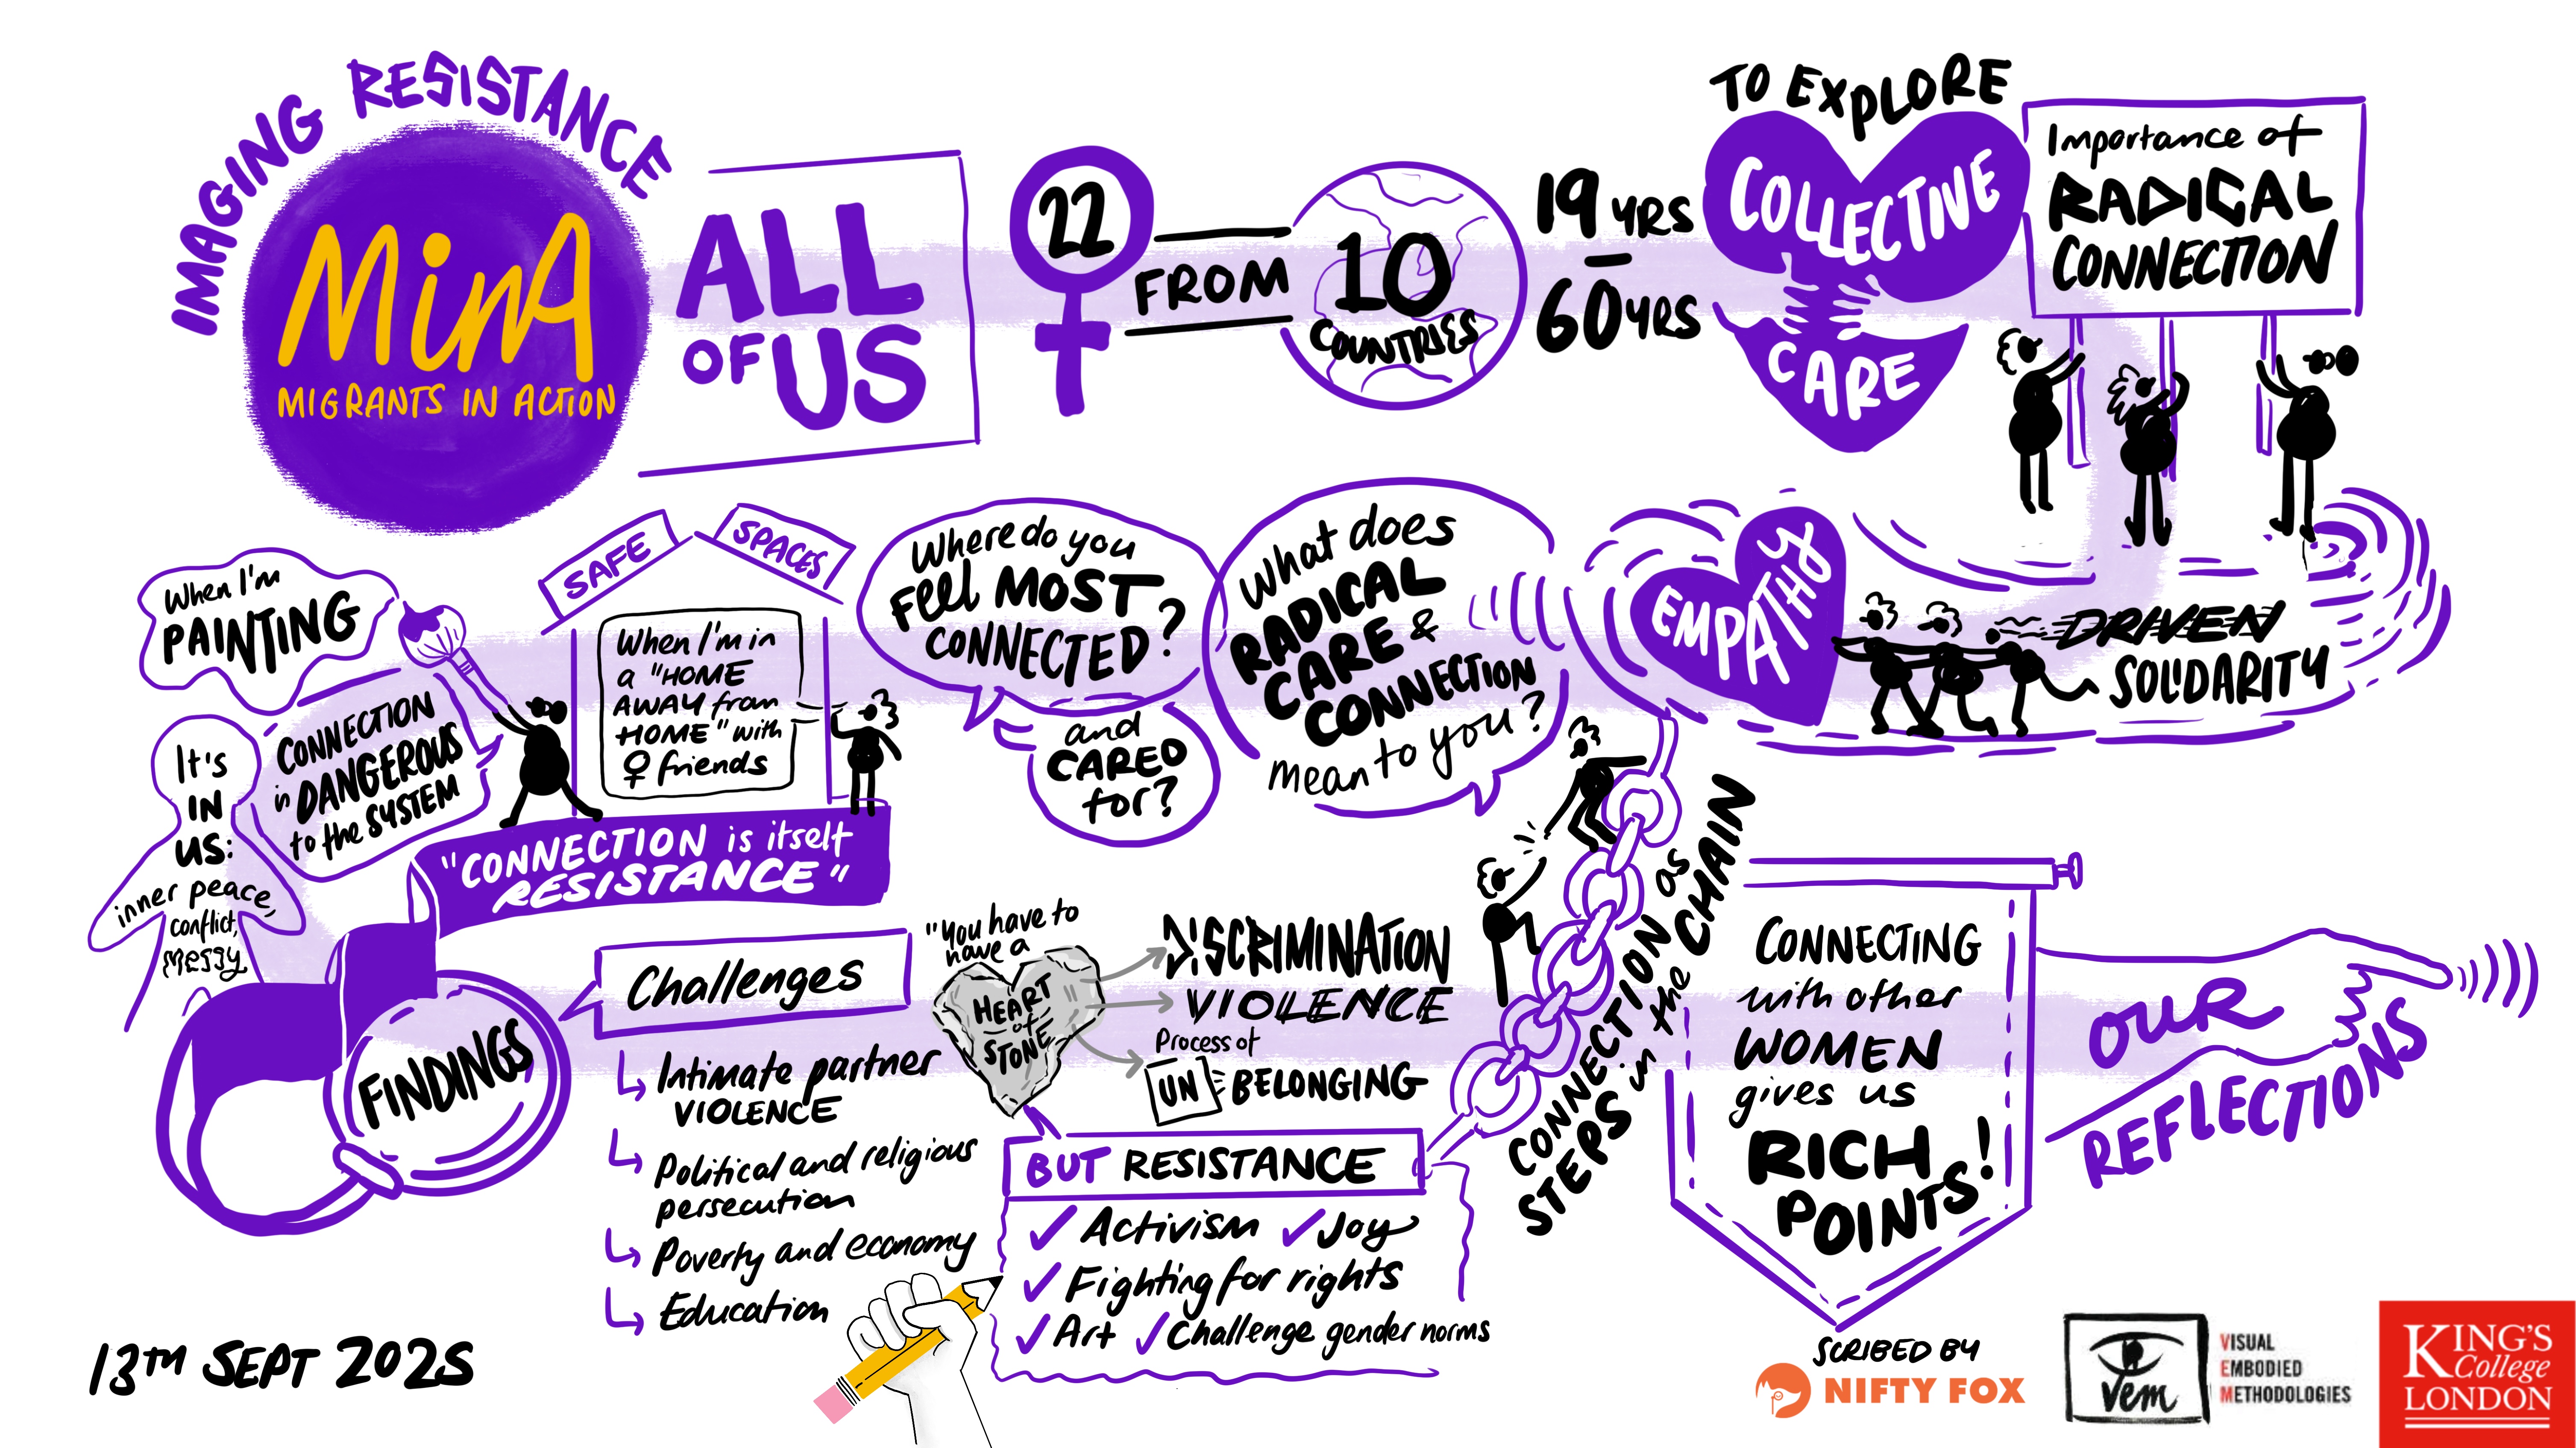 IMAGING RESISTANCE
MinA
MIGRANTS IN ACTION
ALL
OF US
22
FROM
10
COUNTRIES
19 YRS
–
60 YRS
TO EXPLORE
COLLECTIVE
CARE
Importance of
RADICAL
CONNECTION
EMPATHY
DRIVEN
SOLIDARITY
What does
RADICAL
CARE &
CONNECTION
mean to you?
Where do you
feel MOST
CONNECTED?
and
CARED
for?
SAFE SPACES
When I'm in
a "HOME
AWAY from
HOME" with
♀ friends
When I'm
PAINTING
CONNECTION
is DANGEROUS
to the SYSTEM
It's
IN
US:
inner peace,
conflict,
messy
"CONNECTION is itself
RESISTANCE"
FINDINGS
Challenges
Intimate partner
VIOLENCE
Political and religious
persecution
Poverty and economy
Education
"You have to
have a
HEART
of
STONE
DISCRIMINATION
VIOLENCE
Process of
UN BELONGING
BUT RESISTANCE
✓ Activism ✓ Joy
✓ Fighting for rights
✓ Art ✓ Challenge gender norms
CONNECTION as
STEPS in the CHAIN
CONNECTING
with other
WOMEN
gives us
RICH
POINTS!
OUR
REFLECTIONS
13TH SEPT 2025
SCRIBED BY
NIFTY FOX
vem
VISUAL
EMBODIED
METHODOLOGIES
KING'S
College
LONDON